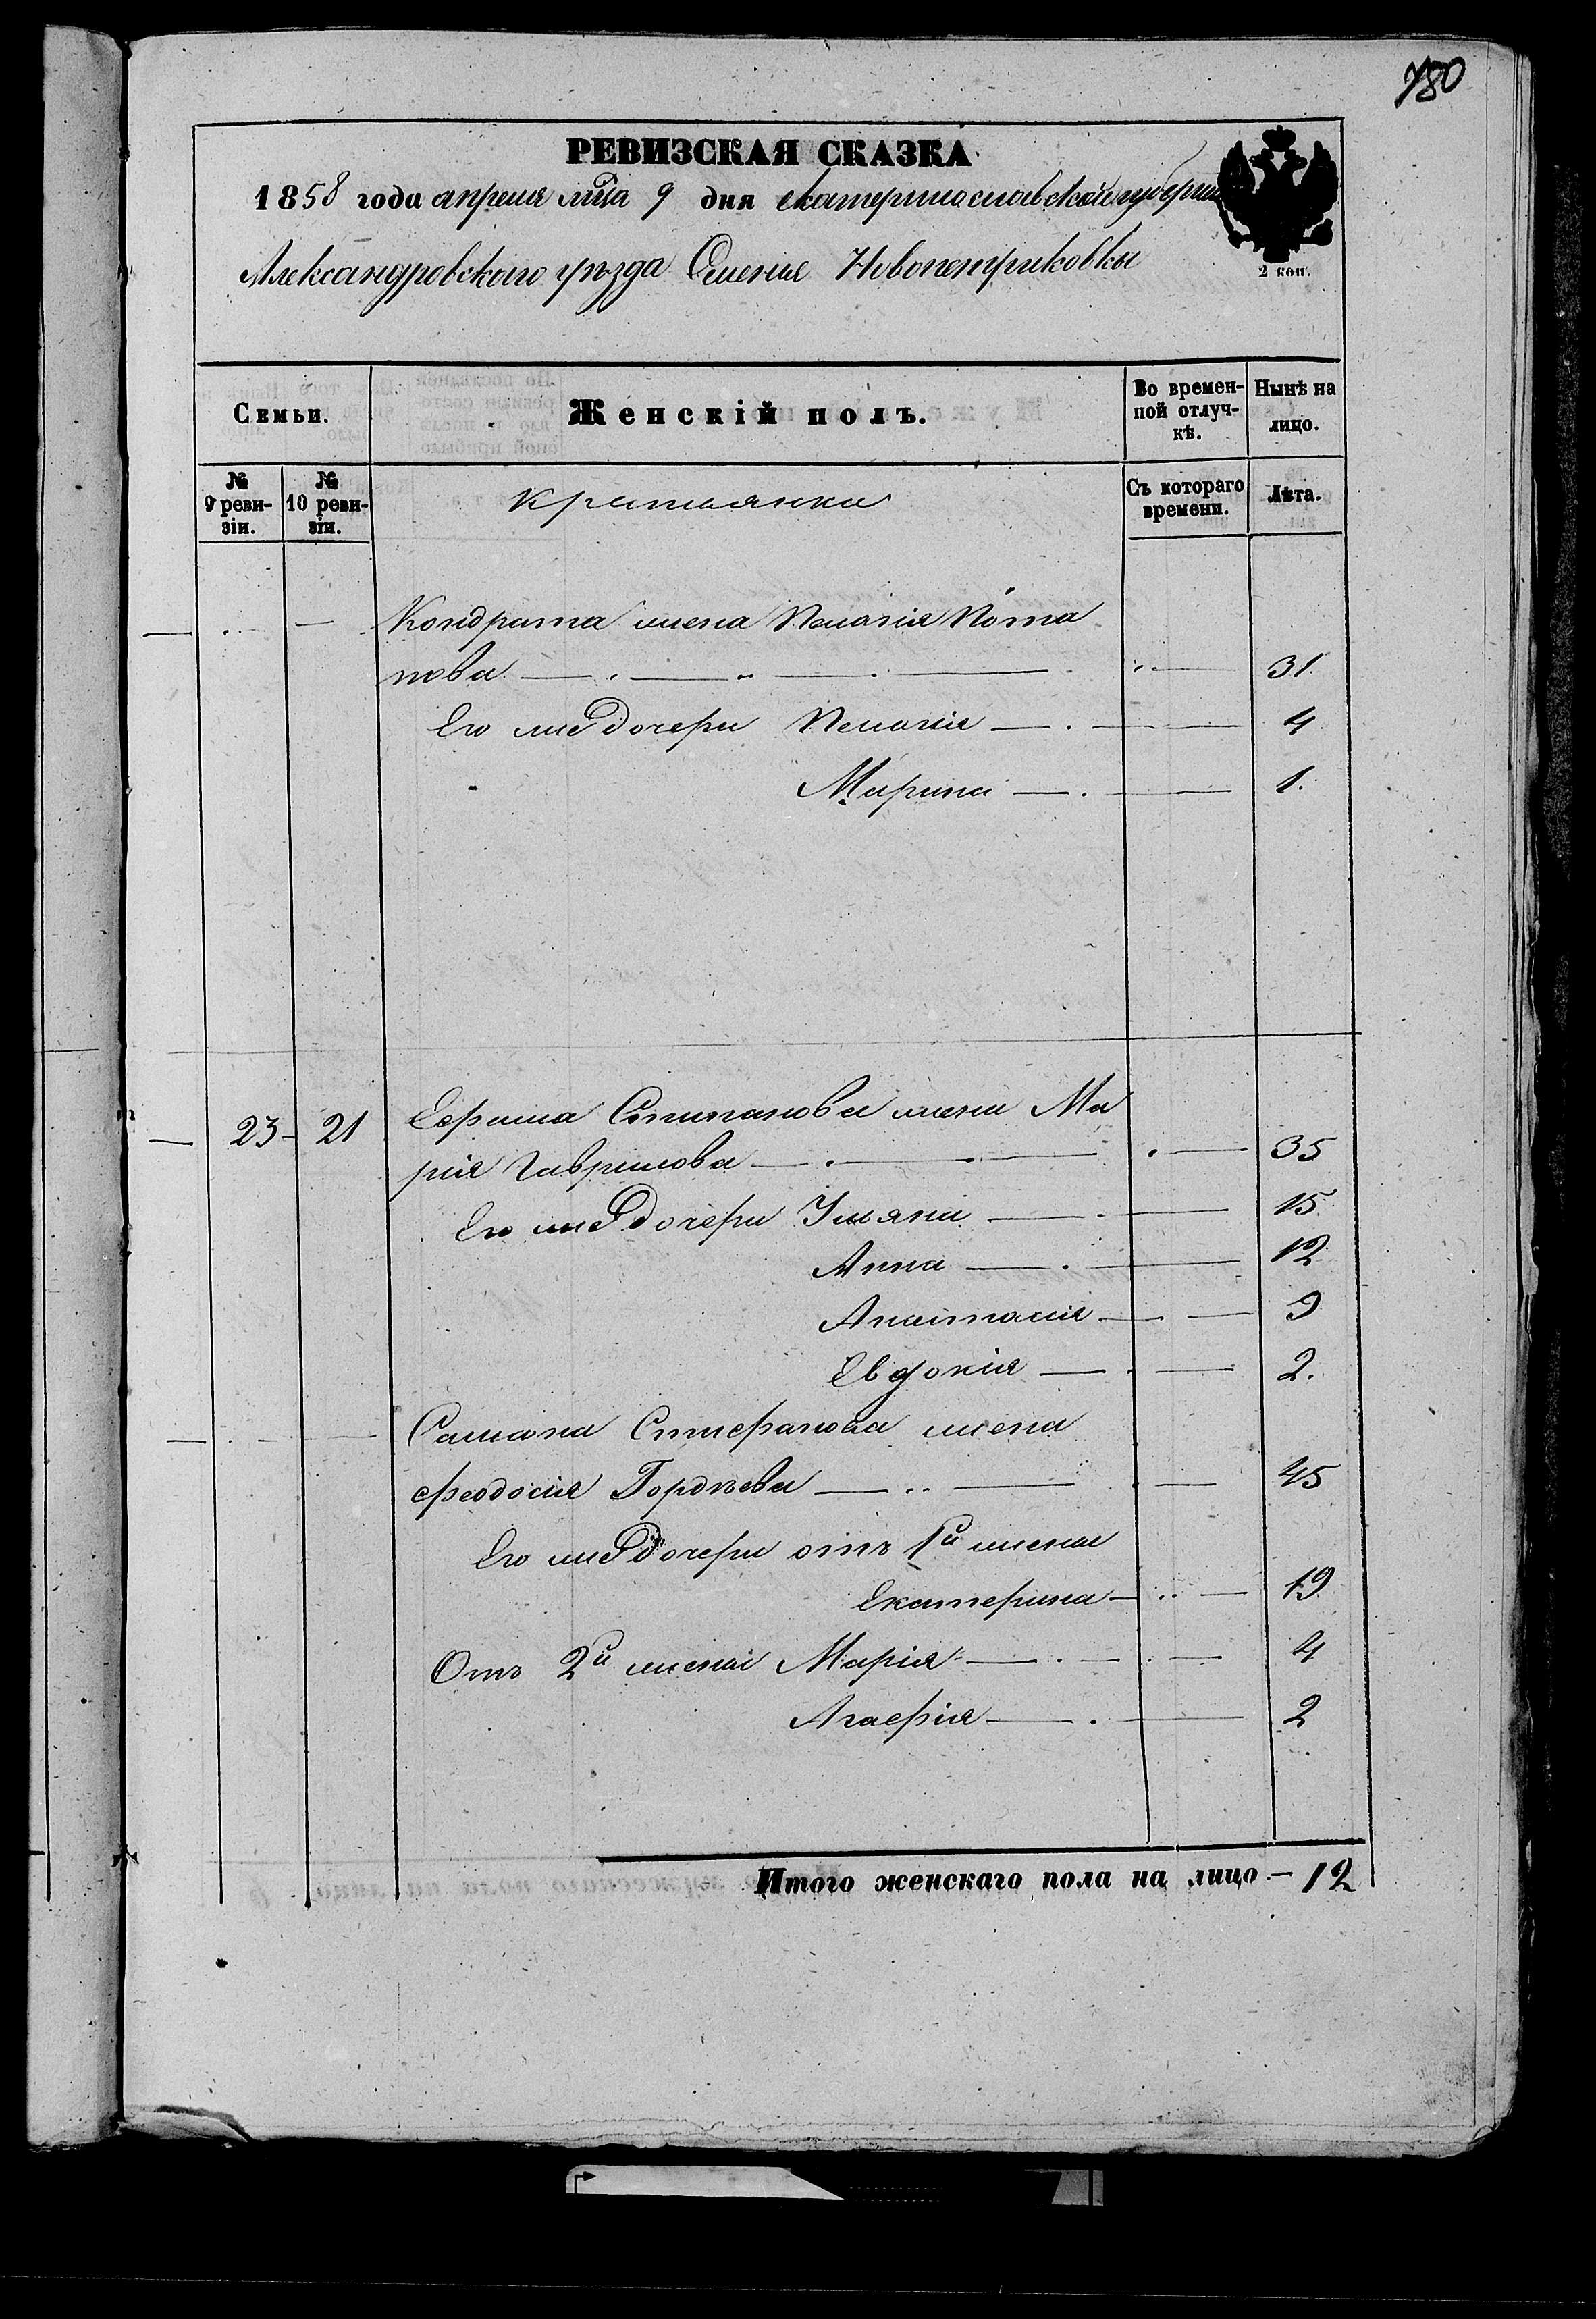 780
РЕВИЗСКАЯ СКАЗКА
1858 года апреля мца 9 дня екатеринославской губернии
2 коп.
Александровского уѣзда Селения Новопетриковки
Семьи.
Женскій полъ.
Во времен-
ной отлуч-
кѣ.
Нынѣ на
лицо.
№
9 реви-
зіи.
№
10 реви-
зіи.
Крестьянка
Съ котораго
времени.
Лѣта.
Кондрата жена Пелагія Пота
пова 31.
Его же дочери Пелагія 4
Марина 1.
23 21 Ефима Степанова жена Ма
рія Гаврилова 35
Его же дочери Ульяна 15
Анна 12
Анастасия 9
Евдокія 2.
Самона Стефанова жена
Феодосия Гордѣева 45
Его же дочери отъ 1й жены
Екатерина 19
Отъ 2й жены Марія 4
Агафія 2
Итого женскаго пола на лицо 12